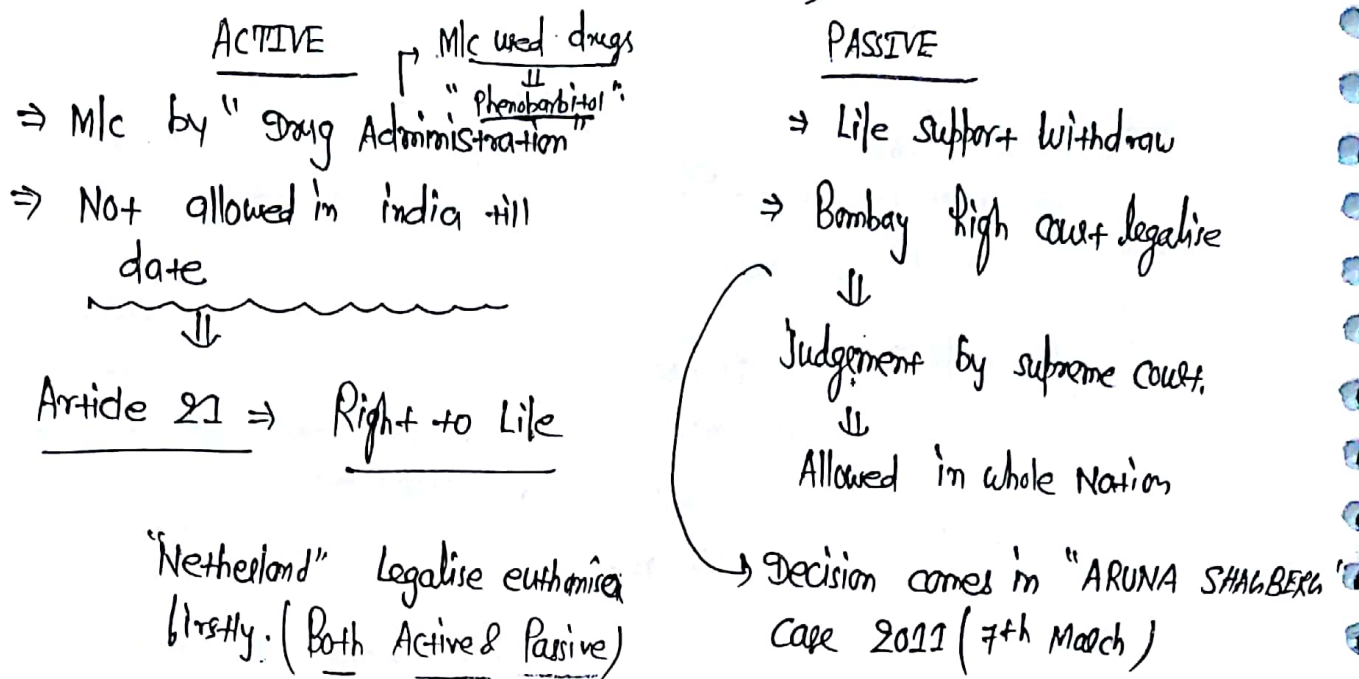 ACTIVE
M/c used drugs
⇓
"Phenobarbitol".
⇒ M/c by "Drug Administration"
⇒ Not allowed in india till
date
⇓
Article 21 ⇒ Right to Life
"Netherland" Legalise euthanisea
firstly. (Both Active & Passive)
PASSIVE
⇒ Life support withdraw
⇒ Bombay high court legalise
⇓
Judgement by supreme court.
⇓
Allowed in whole Nation
→ Decision comes in "ARUNA SHAGBERG"
Case 2011 (7th March)